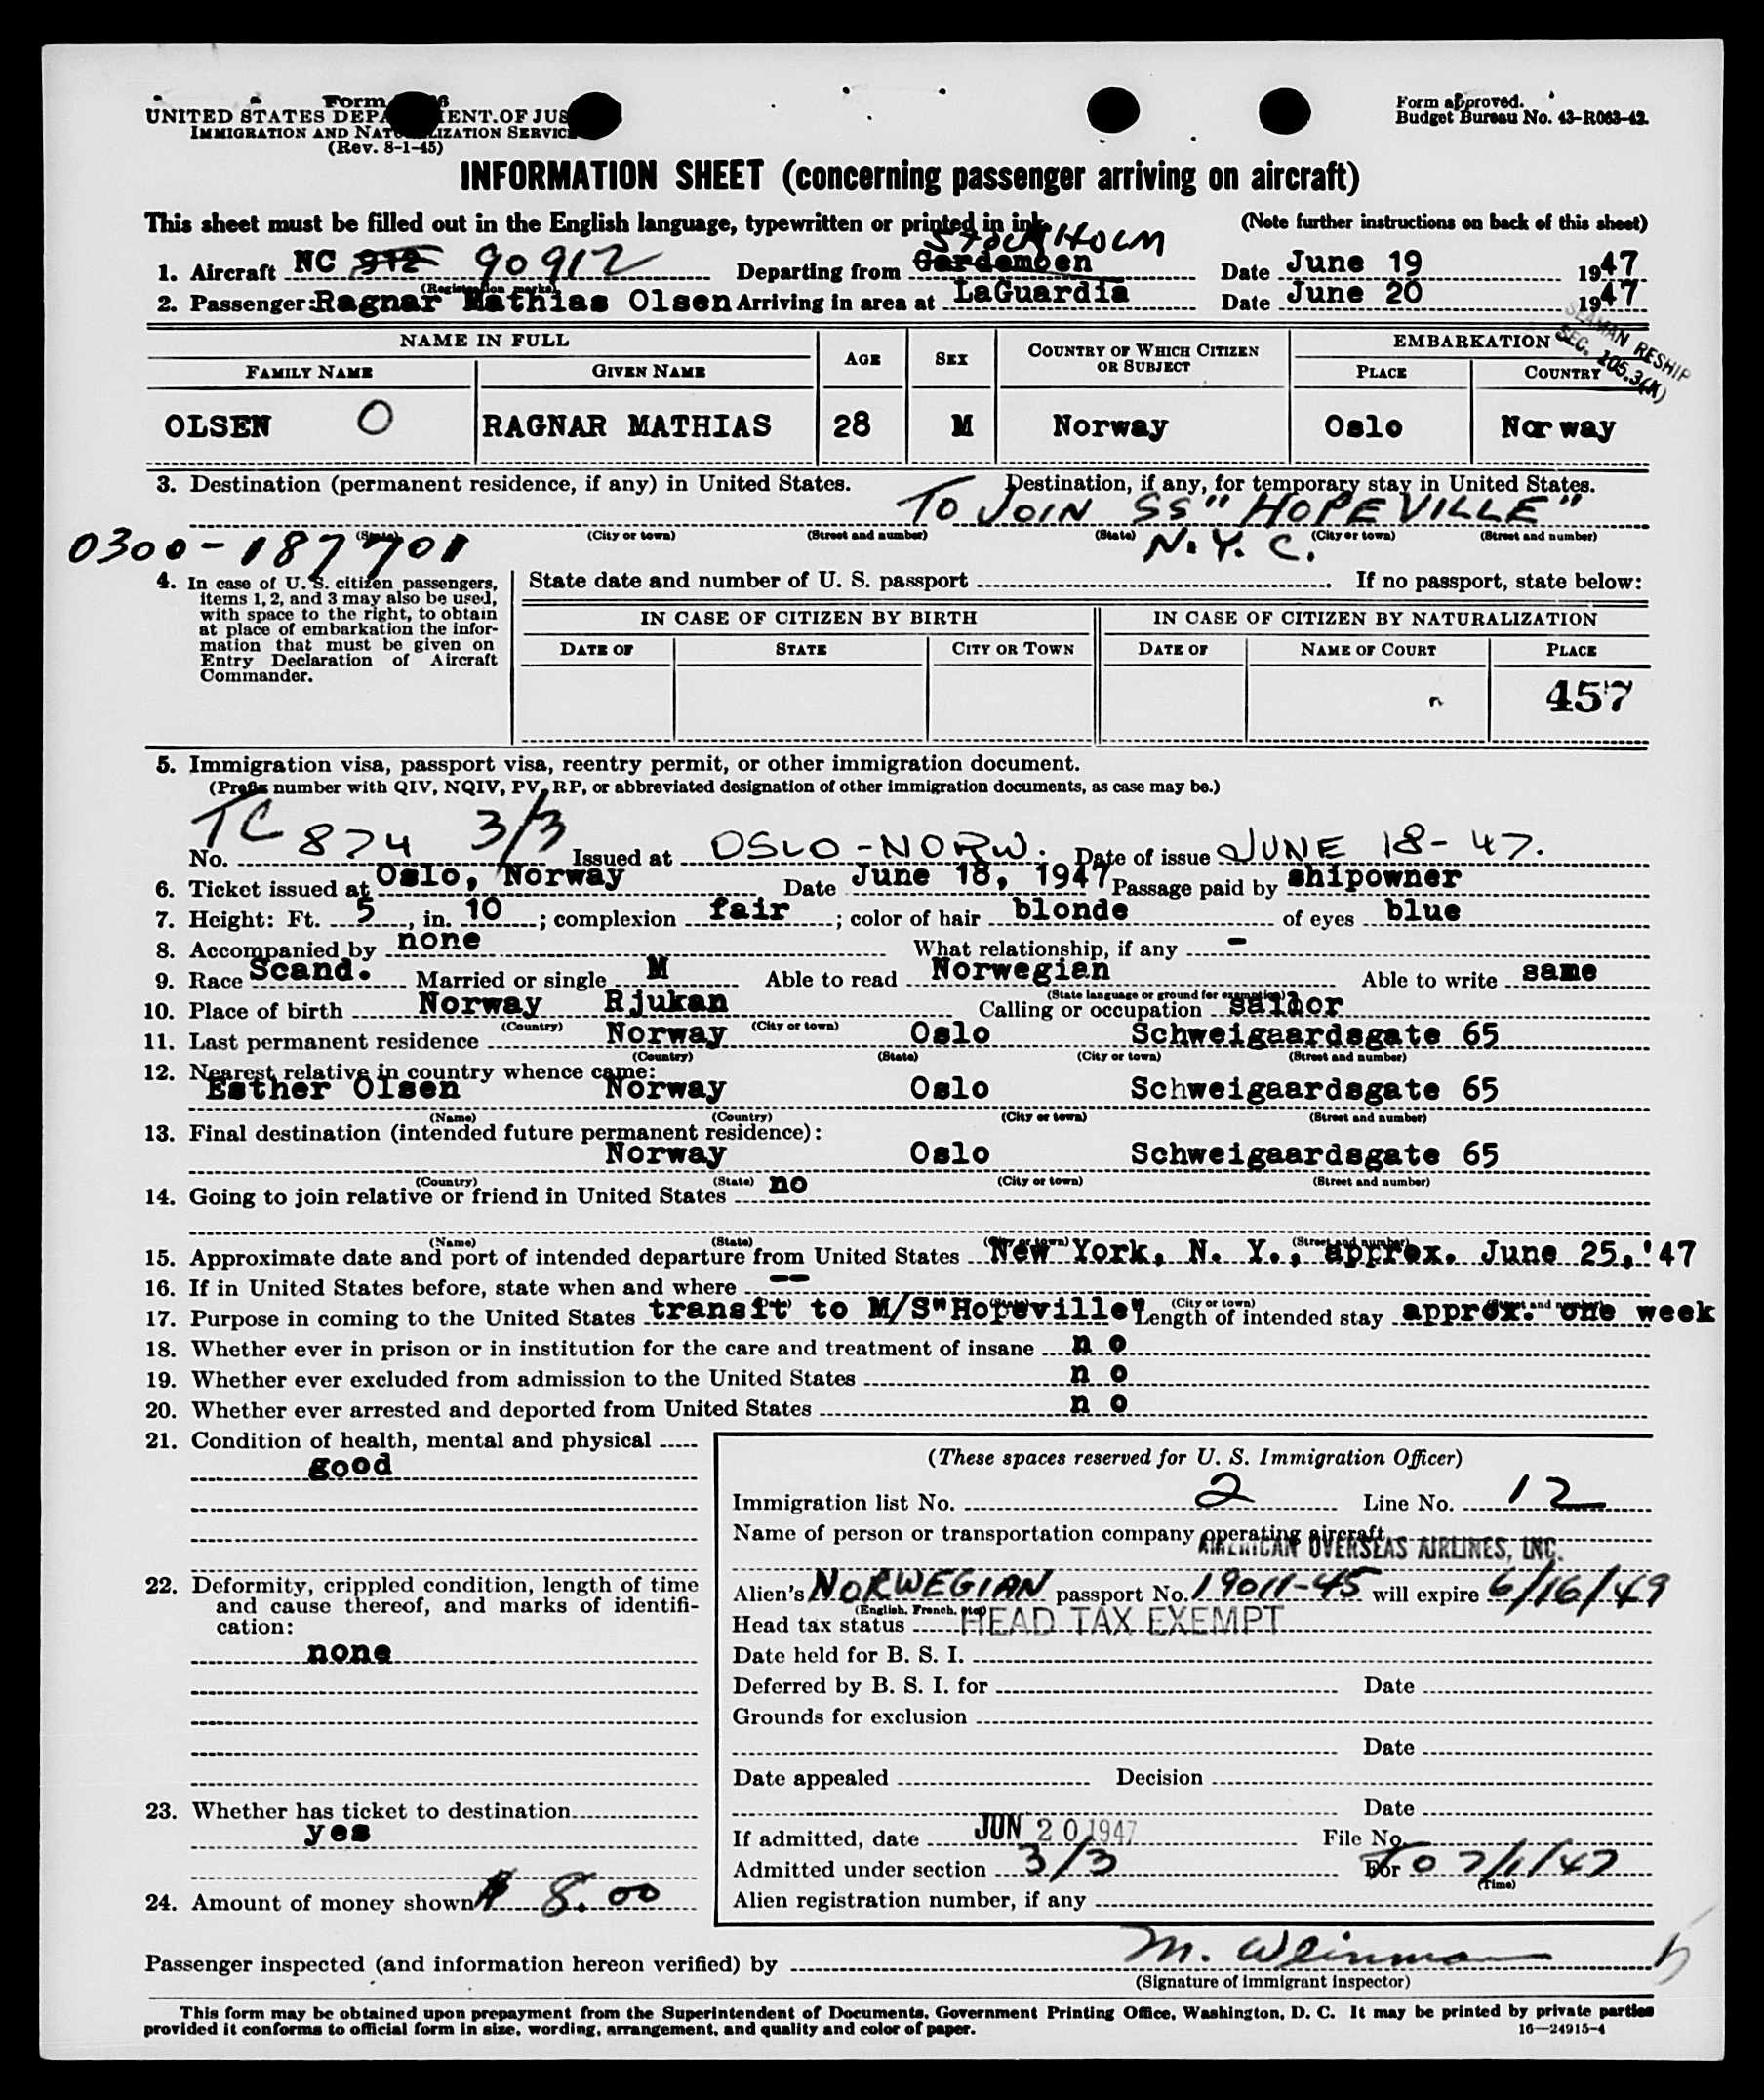 Form
UNITED STATES DEPA ENT OF JUS
IMMIGRATION AND NAT IZATION SERVIC
(Rev. 8-1-45)
Form approved.
Budget Bureau No. 43-R063-42.
INFORMATION SHEET (concerning passenger arriving on aircraft)
This sheet must be filled out in the English language, typewritten or printed in ink. (Note further instructions on back of this sheet)
STOCKHOLM
1. Aircraft NC 912 90912 Departing from Gardemoen Date June 19 1947
(Registration marks)
2. Passenger: Ragnar Mathias Olsen Arriving in area at LaGuardia Date June 20 1947
SEAMAN RESHIP
SEC. 105.3(N)
NAME IN FULL AGE SEX COUNTRY OF WHICH CITIZEN OR SUBJECT EMBARKATION
FAMILY NAME GIVEN NAME PLACE COUNTRY
OLSEN O RAGNAR MATHIAS 28 M Norway Oslo Norway
3. Destination (permanent residence, if any) in United States. Destination, if any, for temporary stay in United States.
TO JOIN SS "HOPEVILLE"
(State) (City or town) (Street and number) (State) (City or town) (Street and number)
0300-187701 N.Y.C.
4. In case of U. S. citizen passengers, items 1, 2, and 3 may also be used, with space to the right, to obtain at place of embarkation the information that must be given on Entry Declaration of Aircraft Commander.
State date and number of U. S. passport If no passport, state below:
IN CASE OF CITIZEN BY BIRTH IN CASE OF CITIZEN BY NATURALIZATION
DATE OF STATE CITY OR TOWN DATE OF NAME OF COURT PLACE
457
5. Immigration visa, passport visa, reentry permit, or other immigration document.
(Prefix number with QIV, NQIV, PV, RP, or abbreviated designation of other immigration documents, as case may be.)
No. TC 874 3/3 Issued at OSLO-NORW. Date of issue JUNE 18-47.
6. Ticket issued at Oslo, Norway Date June 18, 1947 Passage paid by shipowner
7. Height: Ft. 5, in. 10; complexion fair; color of hair blonde of eyes blue
8. Accompanied by none What relationship, if any -
9. Race Scand. Married or single M Able to read Norwegian Able to write same
(State language or ground for exemption)
10. Place of birth Norway Rjukan Calling or occupation sailor
(Country) (City or town)
11. Last permanent residence Norway Oslo Schweigaardsgate 65
(Country) (State) (City or town) (Street and number)
12. Nearest relative in country whence came:
Esther Olsen Norway Oslo Schweigaardsgate 65
(Name) (Country) (City or town) (Street and number)
13. Final destination (intended future permanent residence):
Norway Oslo Schweigaardsgate 65
(Country) (State) (City or town) (Street and number)
14. Going to join relative or friend in United States no
(Name) (State) (City or town) (Street and number)
15. Approximate date and port of intended departure from United States New York, N. Y., approx. June 25,'47
16. If in United States before, state when and where --
(City or town)
17. Purpose in coming to the United States transit to M/S"Hopeville" Length of intended stay approx. one week
18. Whether ever in prison or in institution for the care and treatment of insane n o
19. Whether ever excluded from admission to the United States n o
20. Whether ever arrested and deported from United States n o
21. Condition of health, mental and physical
good
22. Deformity, crippled condition, length of time and cause thereof, and marks of identification:
none
23. Whether has ticket to destination
yes
24. Amount of money shown $ 8.00
(These spaces reserved for U. S. Immigration Officer)
Immigration list No. 2 Line No. 12
Name of person or transportation company operating aircraft
AMERICAN OVERSEAS AIRLINES, INC.
Alien's NORWEGIAN passport No. 19011-45 will expire 6/16/49
(English, French, etc.)
Head tax status HEAD TAX EXEMPT
Date held for B. S. I.
Deferred by B. S. I. for Date
Grounds for exclusion
Date
Date appealed Decision
Date
If admitted, date JUN 20 1947 File No.
Admitted under section 3/3 For TO 7/1/47
(Time)
Alien registration number, if any
Passenger inspected (and information hereon verified) by M. Weinman
(Signature of immigrant inspector)
This form may be obtained upon prepayment from the Superintendent of Documents, Government Printing Office, Washington, D. C. It may be printed by private parties
provided it conforms to official form in size, wording, arrangement, and quality and color of paper. 16—24915-4